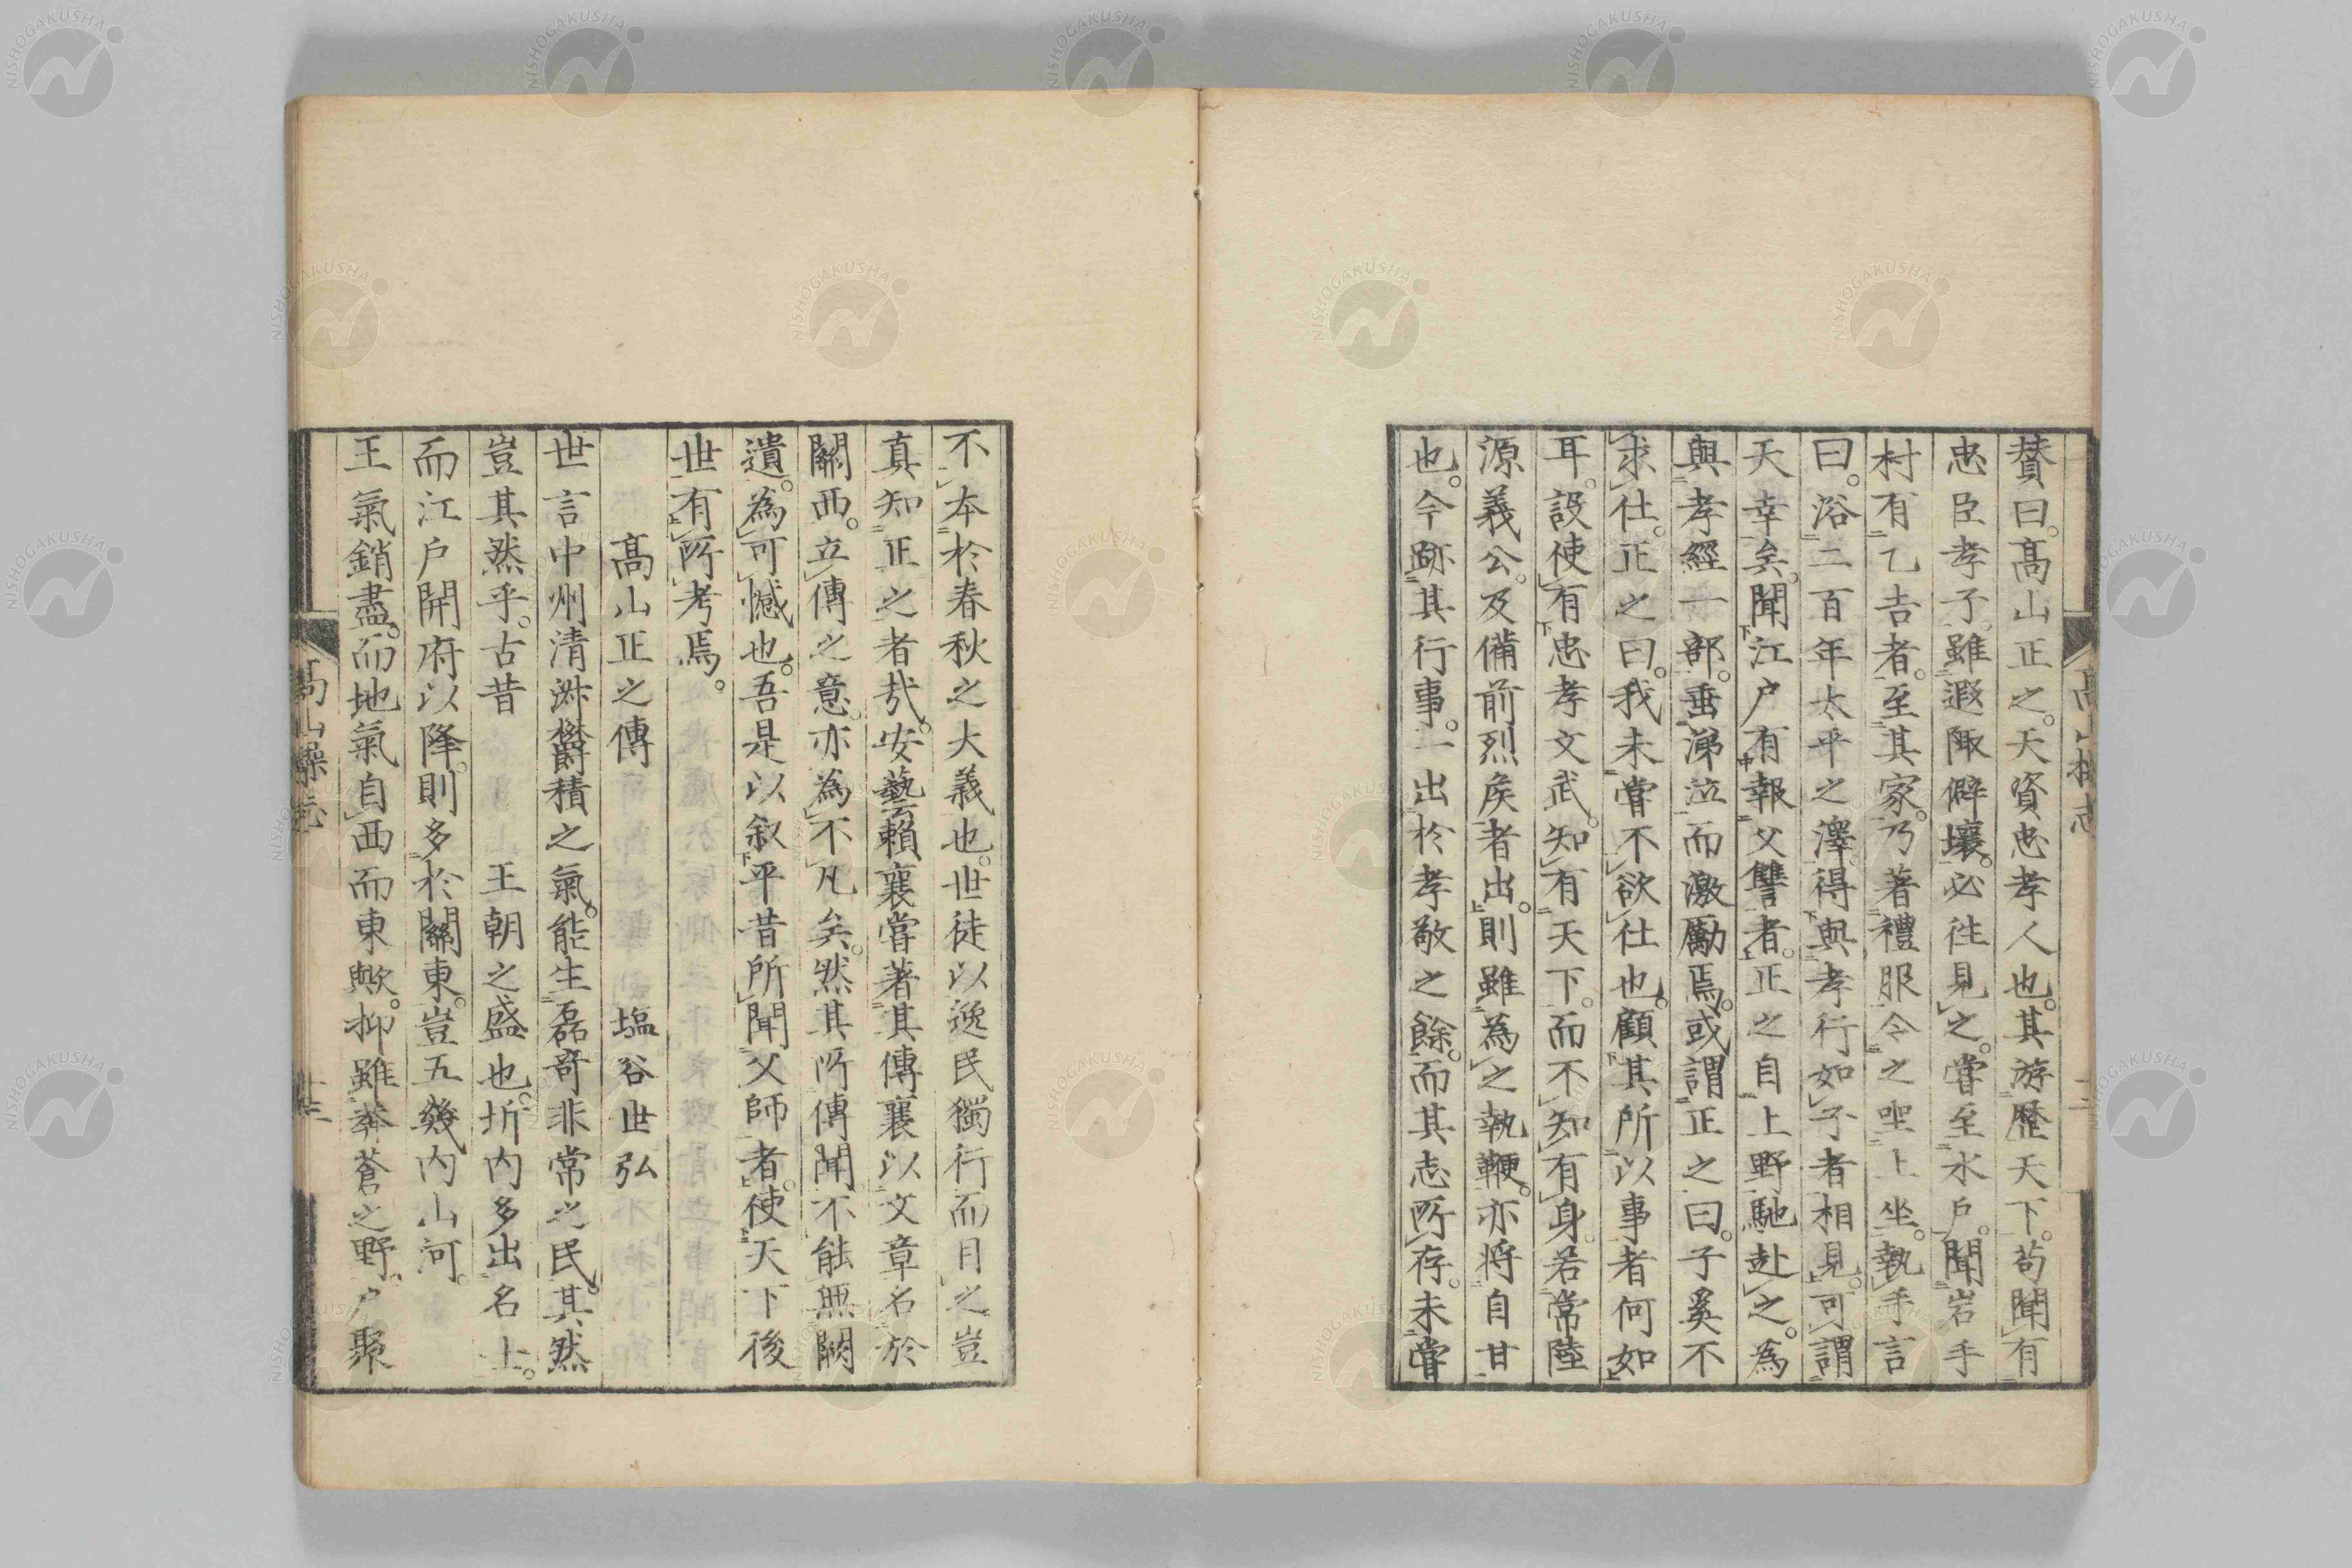 賛曰。高山正之。天資忠孝人也。其游歷天下。苟聞有
忠臣孝子。雖遐陬僻壤。必往見之。嘗至水戶。聞岩手
村有乙吉者。至其家。乃著禮服令之坐上坐。執手言
曰。浴二百年太平之澤。得與孝行如子者相見。可謂
天幸矣。聞江戶有報父讐者。正之自上野馳赴之。為
與孝經一部。垂涕泣而激勵焉。或謂正之曰。子奚不
求仕。正之曰。我未嘗不欲仕也。顧其所以事者何如
耳。設使有忠孝文武。知有天下。而不知有身。若常陸
源義公。及備前烈侯者出。則雖為之執鞭。亦將自甘
也。今跡其行事。一出於孝敬之餘。而其志所存。未嘗
不本於春秋之大義也。世徒以逸民獨行而目之豈
真知正之者哉。安藝賴襄嘗著其傳襄以文章名於
關西。立傳之意。亦為不凡矣。然其所傳聞不能無闕
遺。為可憾也。吾是以叙平昔所聞父師者。使天下後
世有所考焉。
高山正之傳 塩谷世弘
世言中州清淑欝積之氣。能生磊奇非常之民。其然
豈其然乎。古昔 王朝之盛也。圻內多出名士。
而江戶開府以降。則多於關東。豈五幾內山河。
王氣銷盡。而地氣自西而東歟。抑雖莽蒼之野。戶聚